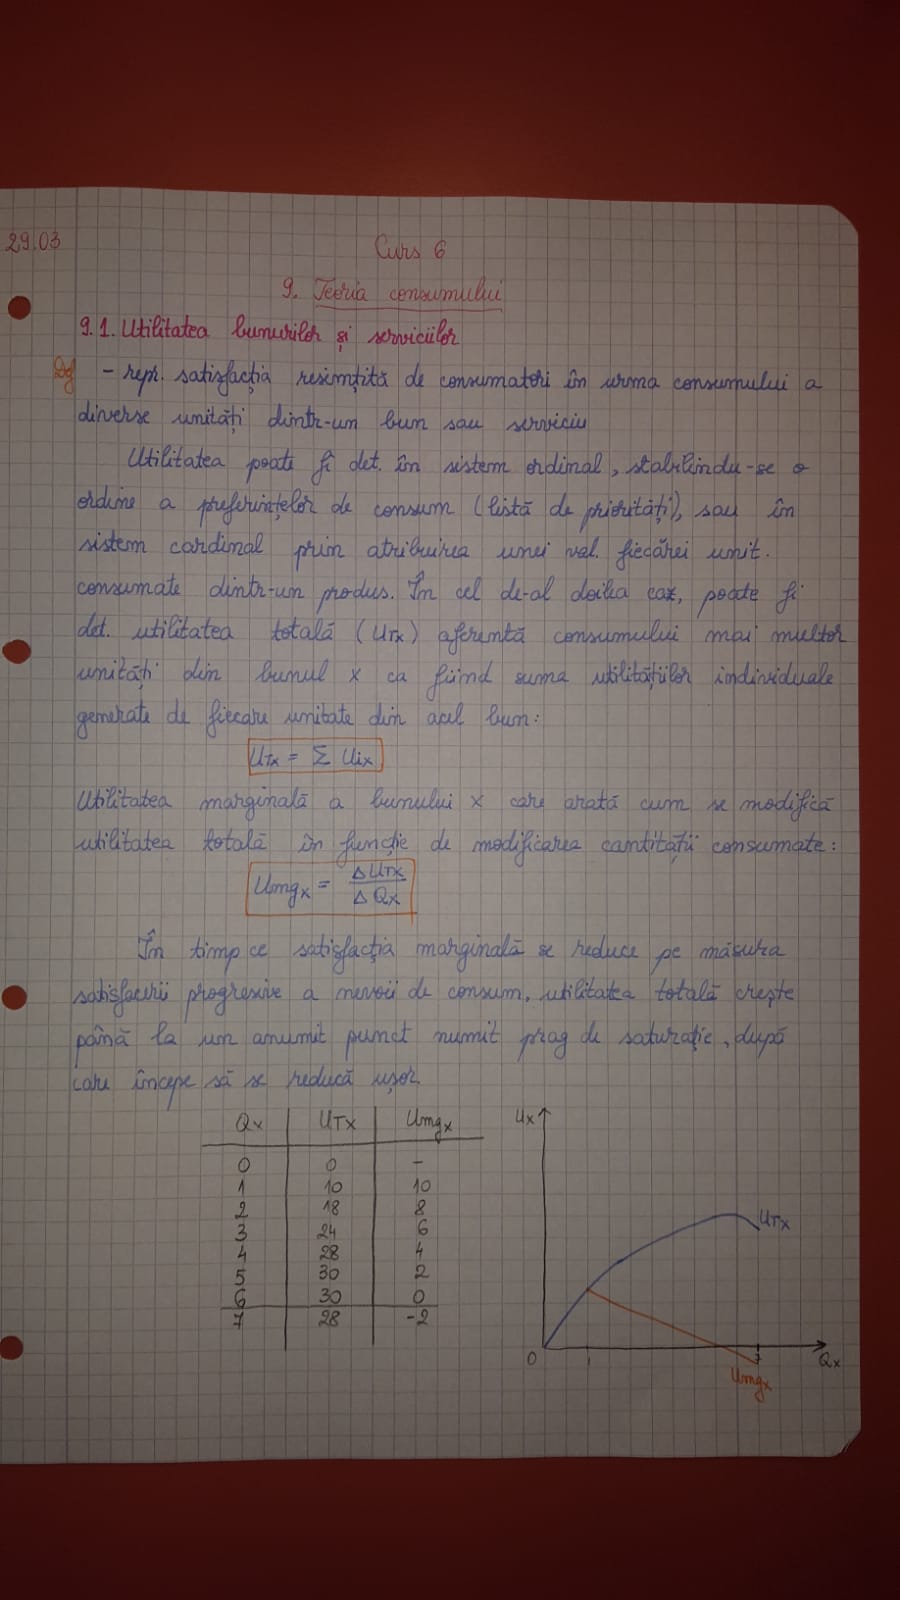 29.03
Curs 6
9. Teoria consumului
9.1. Utilitatea bunurilor și serviciilor
Def
- repr. satisfacția resimțită de consumatori în urma consumului a
diverse unități dintr-un bun sau serviciu
Utilitatea poate fi det. în sistem ordinal, stabilindu-se o
ordine a preferințelor de consum (listă de priorități), sau în
sistem cardinal prin atribuirea unei val. fiecărei unit.
consumate dintr-un produs. În cel de-al doilea caz, poate fi
det. utilitatea totală (UTx) aferentă consumului mai multor
unități din bunul x ca fiind suma utilităților individuale
generate de fiecare unitate din acel bun:
UTx = Σ Uix
Utilitatea marginală a bunului x care arată cum se modifică
utilitatea totală în funcție de modificarea cantității consumate:
Umgx = ΔUTx / ΔQx
În timp ce satisfacția marginală se reduce pe măsura
satisfacerii progresive a nevoii de consum, utilitatea totală crește
până la un anumit punct numit prag de saturație, după
care începe să se reducă ușor.
Qx UTx Umgx
0 0 -
1 10 10
2 18 8
3 24 6
4 28 4
5 30 2
6 30 0
7 28 -2
Ux
UTx
0 1 7 Qx
Umgx